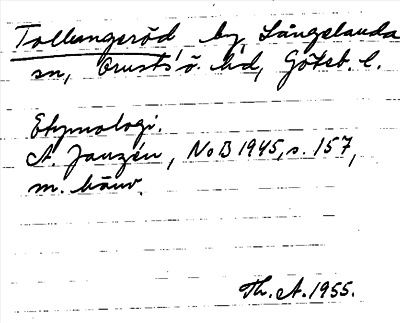 Tollungeröd by, Långelanda
sn, Orusts ö. hd, Göteb. l.
Etymologi.
A. Janzén, NoB 1945, s. 157,
m. hänv.
Th. A. 1955.